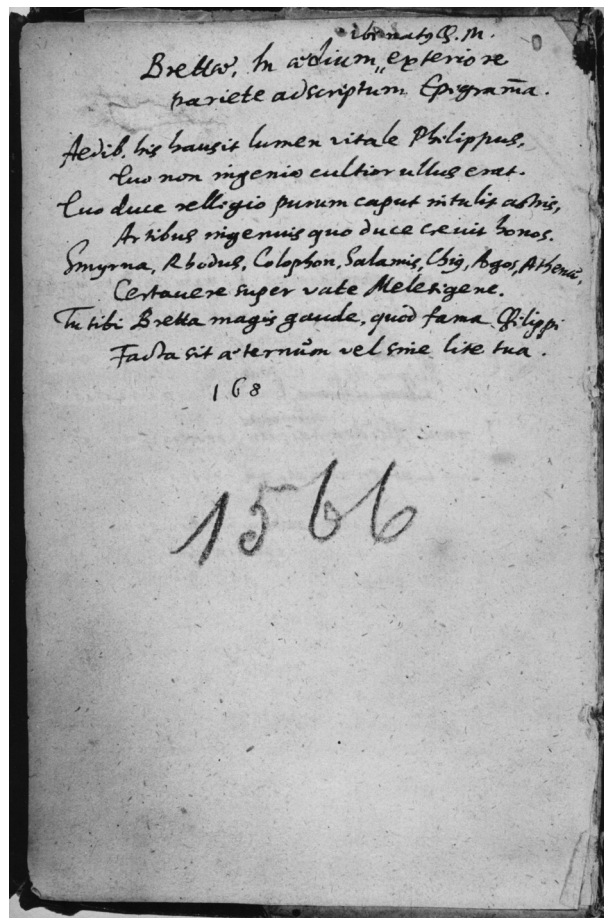 ibi natus Ph. M.
Brettae, In aedium exteriore
pariete adscriptum Epigram̄a.
Aedib. his hausit lumen vitale Philippus,
Quo non ingenio cultior ullus erat.
Quo duce rellegio purum caput intulit astris,
Artibus ingenuis quo duce crevit honos.
Smyrna, Rhodus, Colophon, Salamis, Chios, Argos, Athenae,
Certavere super vate Melesigene.
Tu tibi Bretta magis gaude, quòd fama Philippi
Facta sit aeternùm vel sine lite tua.
168
1566